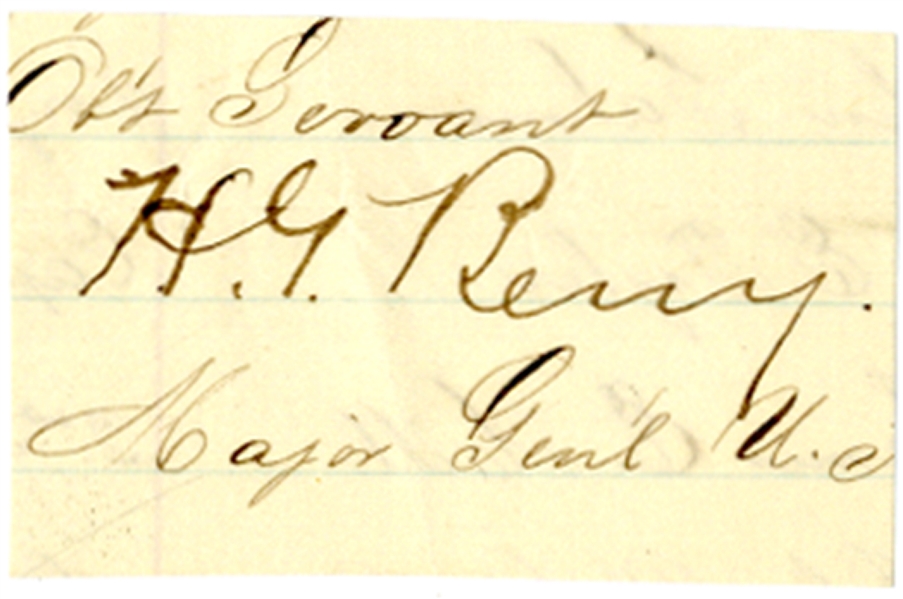 Obt Servant
H.G. Berry.
Major Genl U.S